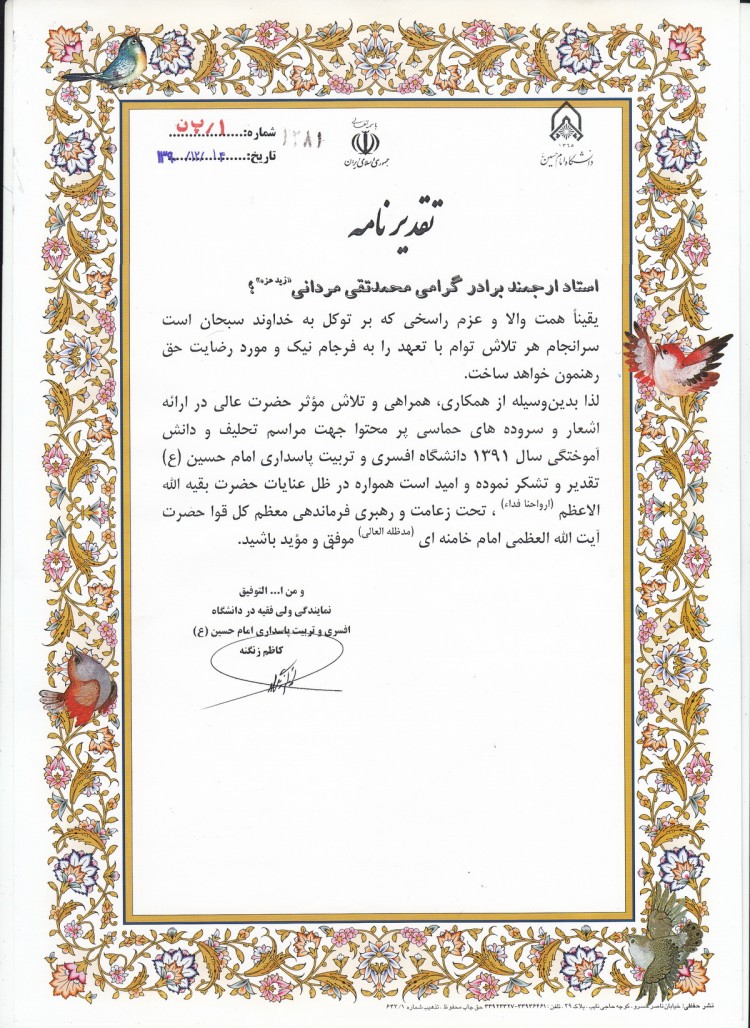 باسمه تعالی
جمهوری اسلامی ایران
۱۳۶۵
دانشگاه امام حسین
شماره: ۱۲۸۱ /۱ پ ن
تاریخ: ۱۳۹۰/۱۲/۱۴
تقدیرنامه
استاد ارجمند برادر گرامی محمدتقی مردانی «زید عزه» ؟
یقیناً همت والا و عزم راسخی که بر توکل به خداوند سبحان است
سرانجام هر تلاش توام با تعهد را به فرجام نیک و مورد رضایت حق
رهنمون خواهد ساخت.
لذا بدین‌وسیله از همکاری، همراهی و تلاش مؤثر حضرت عالی در ارائه
اشعار و سروده های حماسی پر محتوا جهت مراسم تحلیف و دانش
آموختگی سال ۱۳۹۱ دانشگاه افسری و تربیت پاسداری امام حسین (ع)
تقدیر و تشکر نموده و امید است همواره در ظل عنایات حضرت بقیه الله
الاعظم (ارواحنا فداء) ، تحت زعامت و رهبری فرماندهی معظم کل قوا حضرت
آیت الله العظمی امام خامنه ای (مدظله العالی) موفق و مؤید باشید.
و من ا... التوفیق
نمایندگی ولی فقیه در دانشگاه
افسری و تربیت پاسداری امام حسین (ع)
کاظم زنگنه
نشر حفظی: خیابان ناصر خسرو، کوچه حاجی نایب، پلاک ۲۹ ، تلفن: ۳۳۹۳۶۴۶۱-۳۳۹۲۳۳۲۷ حق چاپ محفوظ ، تذهیب شماره ۶۳۲/۱